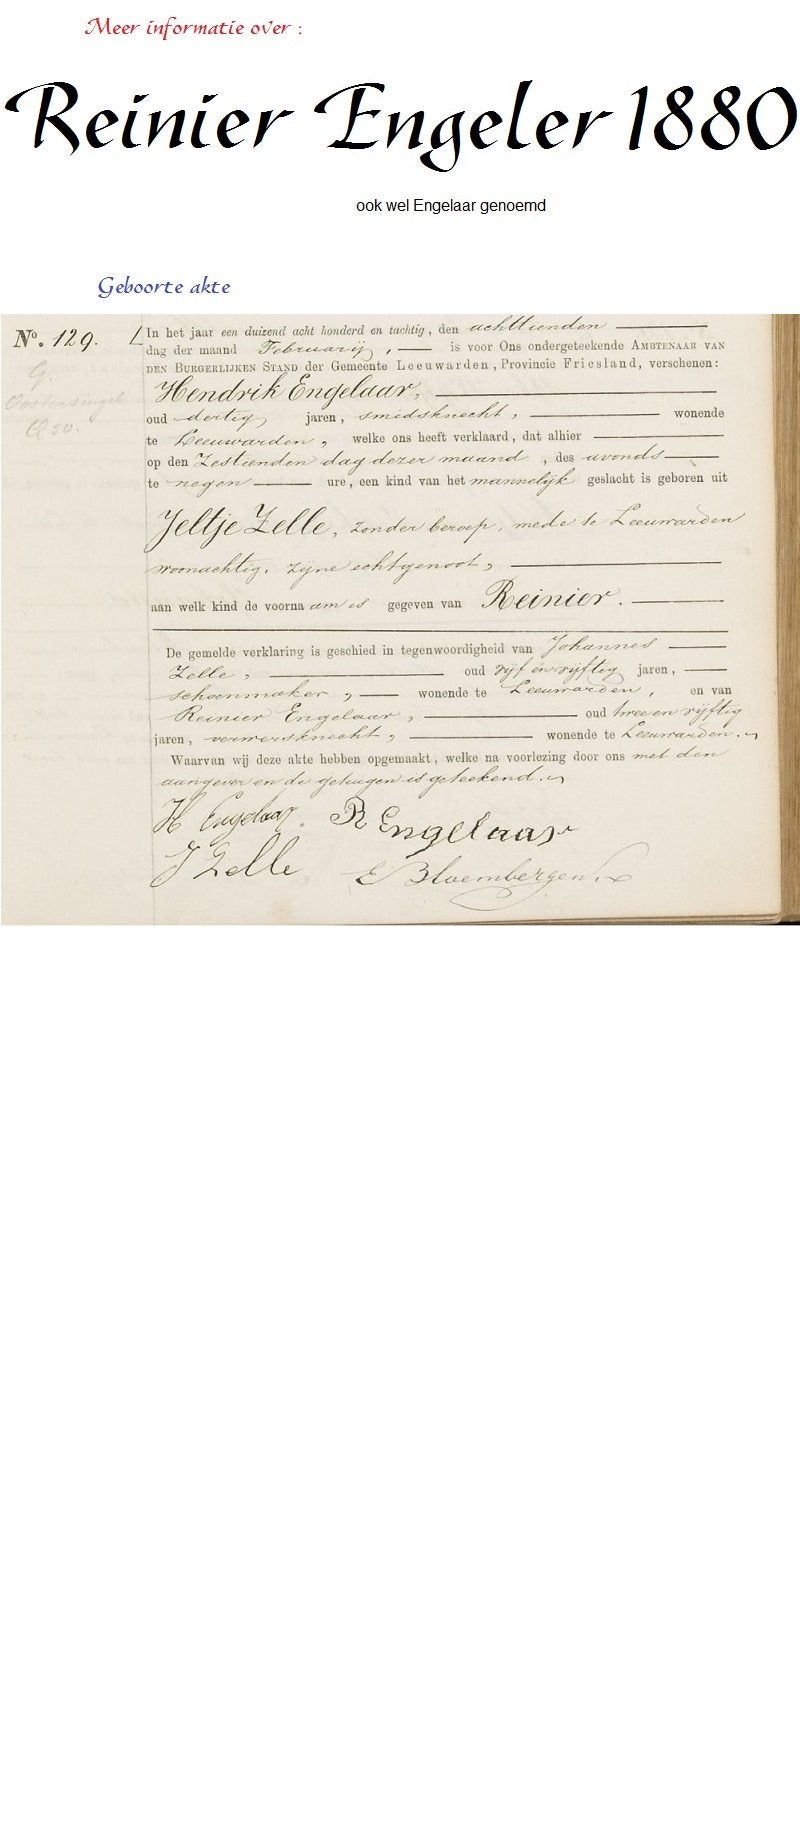 Meer informatie over :
Reinier Engeler 1880
ook wel Engelaar genoemd
Geboorte akte
No. 129.
G.
Oostersingel
In het jaar een duizend acht honderd en tachtig, den achttienden
dag der maand Februarij, is voor Ons ondergeteekende Ambtenaar van
den Burgerlijken Stand der Gemeente Leeuwarden, Provincie Friesland, verschenen:
Hendrik Engelaar,
oud dertig jaren, smidsknecht, wonende
te Leeuwarden, welke ons heeft verklaard, dat alhier
op den Zestienden dag dezer maand, des avonds
te negen ure, een kind van het mannelijk geslacht is geboren uit
Jeltje Zelle, zonder beroep, mede te Leeuwarden
woonachtig, zijne echtgenoot,
aan welk kind de voornaam is gegeven van Reinier.
De gemelde verklaring is geschied in tegenwoordigheid van Johannes
Zelle, oud vijf en vijftig jaren,
schoenmaker, wonende te Leeuwarden, en van
Reinier Engelaar, oud twee en vijftig
jaren, verwersknecht, wonende te Leeuwarden.
Waarvan wij deze akte hebben opgemaakt, welke na voorlezing door ons met den
aangever en de getuigen is geteekend.
H Engelaar. R Engelaar
J Zelle E Bloembergen